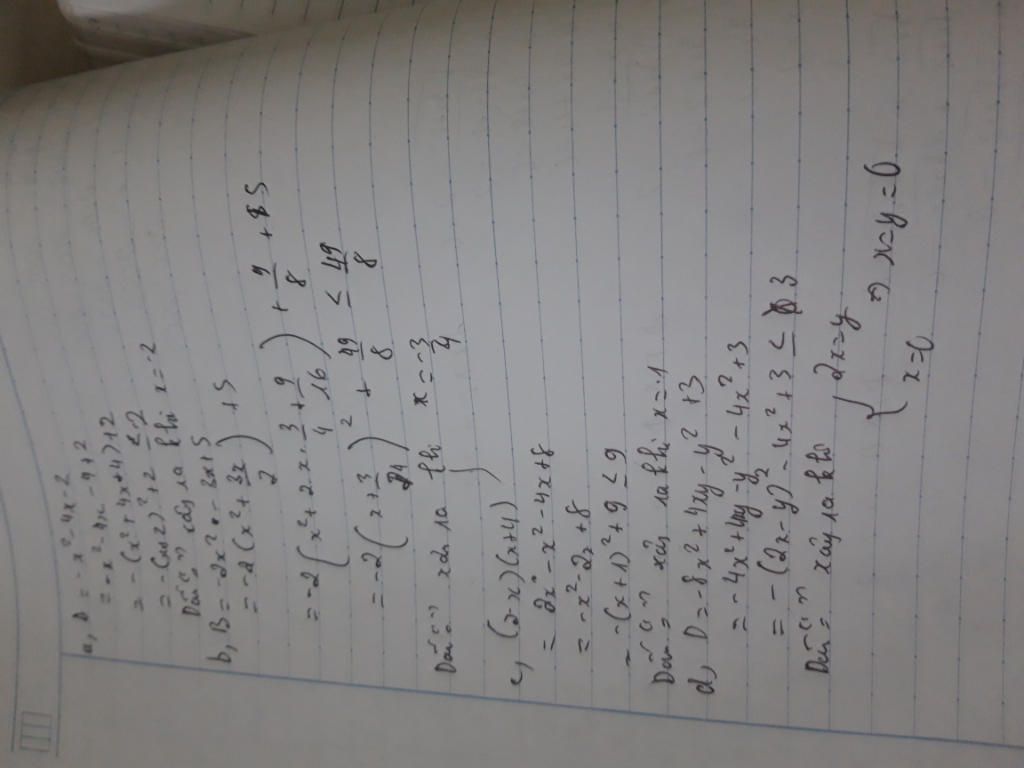 a, A = -x² - 4x - 2
= -x² - 4x - 4 + 2
= -(x² + 4x + 4) + 2
= -(x+2)² + 2 ≤ 2
Dấu "=" xảy ra khi x = -2
b, B = -2x² - 3x + 5
= -2(x² + 3x/2) + 5
= -2(x² + 2x . 3/4 + 9/16) + 9/8 + 5
= -2(x + 3/4)² + 49/8 ≤ 49/8
Dấu "=" xảy ra khi x = -3/4
c, (2-x)(x+4)
= 2x - x² - 4x + 8
= -x² - 2x + 8
= -(x+1)² + 9 ≤ 9
Dấu "=" xảy ra khi x = -1
d, D = -8x² + 4xy - y² + 3
= -4x² + 4xy - y² - 4x² + 3
= -(2x - y)² - 4x² + 3 ≤ 3
Dấu "=" xảy ra khi { 2x = y
x = 0 => x = y = 0